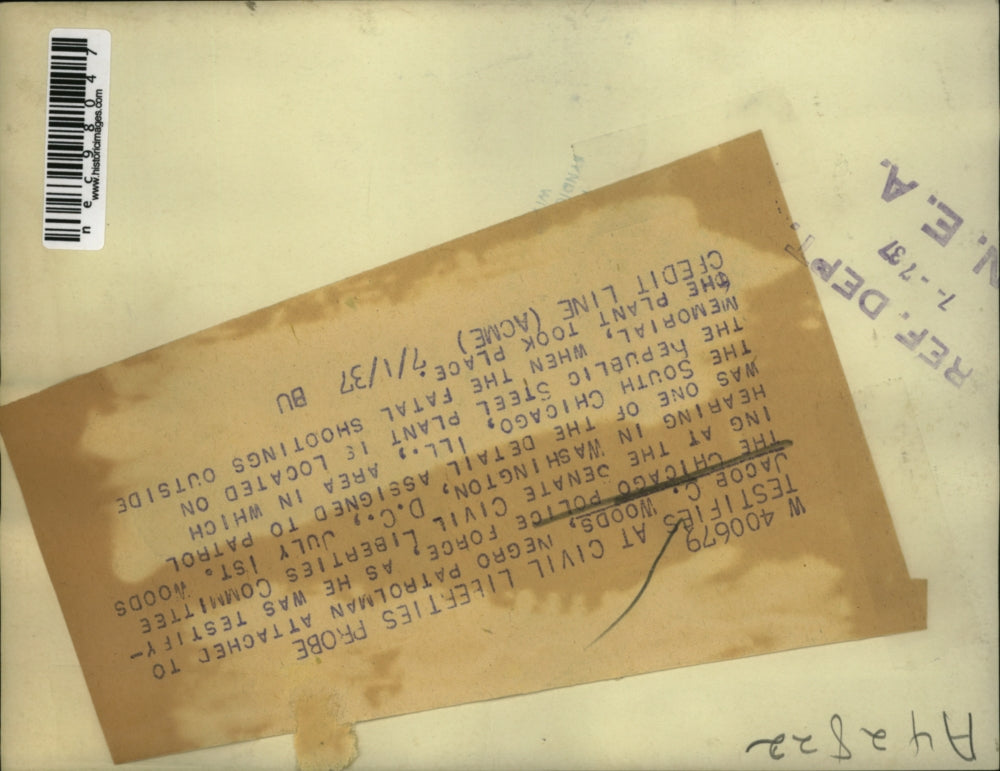 W 400679
TESTIFIES AT CIVIL LIBERTIES PROBE
JACOB C. WOODS, NEGRO PATROLMAN ATTACHED TO
THE CHICAGO POLICE FORCE, AS HE WAS TESTIFY-
ING AT THE SENATE CIVIL LIBERTIES COMMITTEE
HEARING IN WASHINGTON, D.C., JULY 1ST. WOODS
WAS ONE OF THE DETAIL ASSIGNED TO PATROL
THE SOUTH CHICAGO, ILL., AREA IN WHICH
THE REPUBLIC STEEL PLANT IS LOCATED ON
MEMORIAL, WHEN THE FATAL SHOOTINGS OUTSIDE
THE PLANT TOOK PLACE.
CREDIT LINE (ACME) 7/1/37 BU
REF. DEPT.
7-7-37
N. E. A.
A42822
nec98047
www.historicimages.com